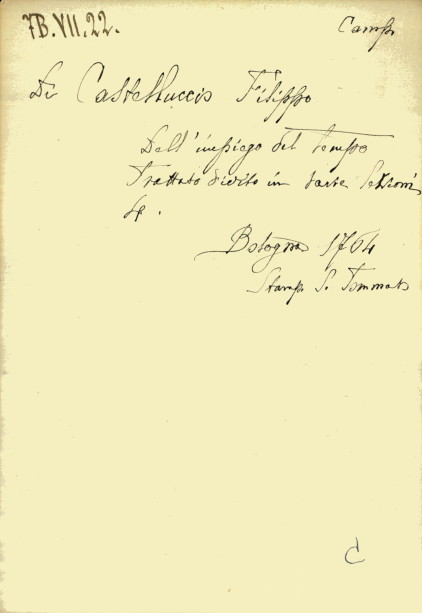 7B.VII.22.
Camp
Di Castelluccio Filippo
Dell'impiego del tempo
Trattato diviso in varie Lezioni
4.
Bologna 1764
Stamp S. Tommaso
C